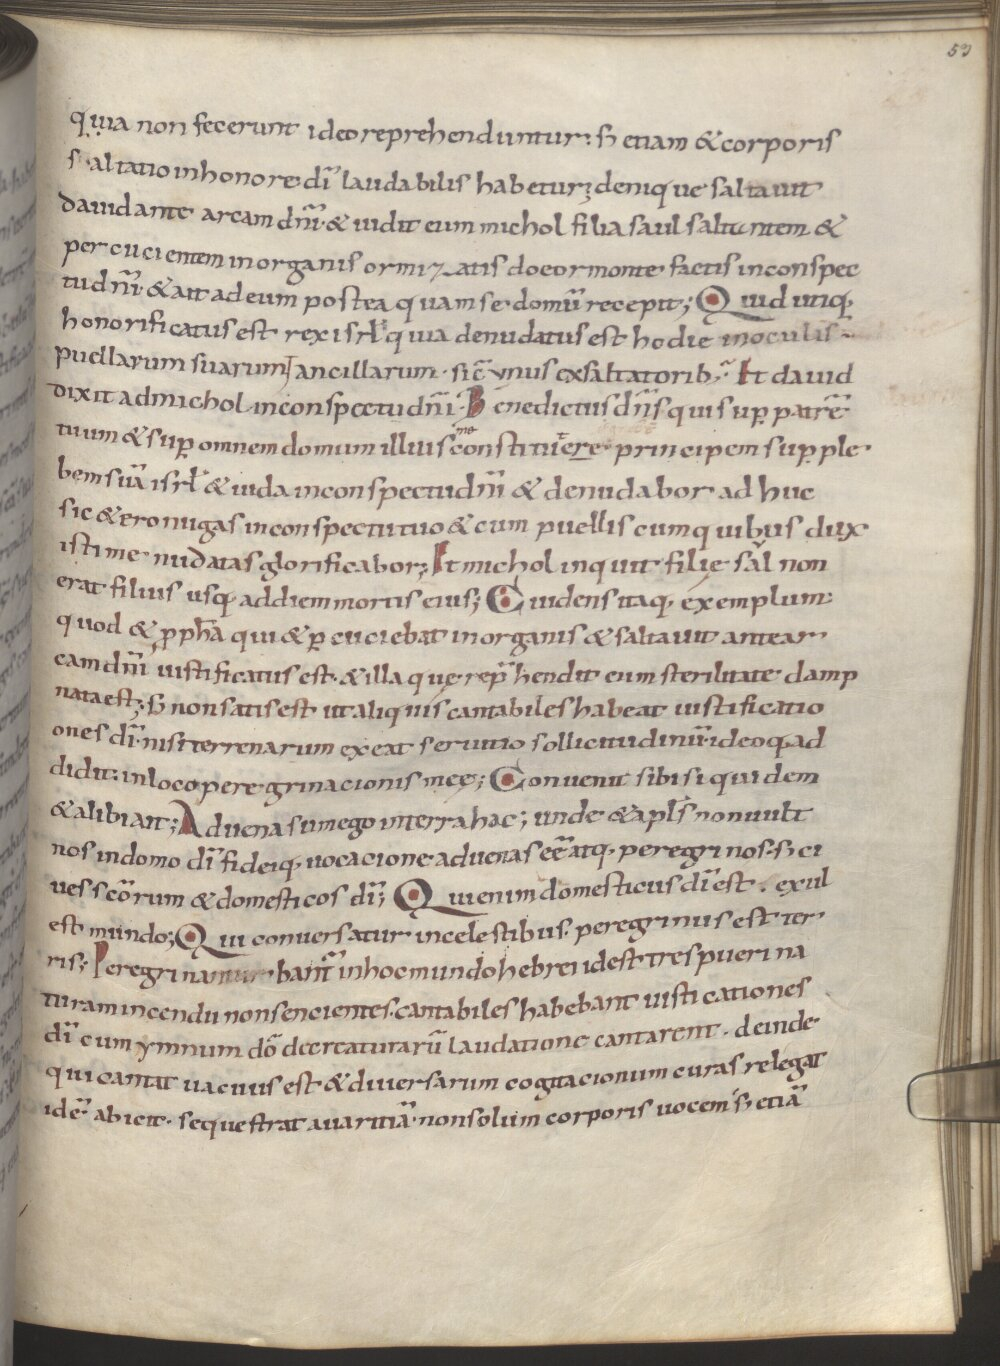 53
quia non fecerunt ideo reprehenduntur: s& etiam & corporis
saltatio in honore dī laudabilis habetur; denique saltauit
dauid ante arcam dn̄i· & uidit eum michol filia saul saltantem &
percucientem in organis ormizatis docormonte factis in conspec
tu dn̄i· & ait ad eum postea quam se domū recepit; Quid utiq·
honorificatus est rex isrł quia denudatus est hodie in oculis
puellarum suarum ancillarum· sic̄ ynus exsaltatorib; Et dauid
dixit ad michol in conspectu dn̄i· Benedictus dn̄s qui sup patrē
tuum & sup omnem domum illius me constituere principem sup ple
bem suā isrł & iuda in conspectu dn̄i & denudabor adhuc
sic & ero nugas in conspectu tuo & cum puellis cum quibus dux
isti me nudatas glorificabor; Et michol inquit filie sāl non
erat filius usq· ad diem mortis eius; Euidens itaq· exemplum
quod & pph̄a qui & pcuciebat in organis & saltauit ante ar
cam dn̄i iustificatus est· & illa que rep̄hendit eum sterilitate damp
nata est; s& non satis est ut aliquis cantabiles habeat iustificatio
ones dī· nisi terrenarum exeat seruitio sollicitudinū· ideoq· ad
didit: in loco peregrinacionis meę; Conuenit sibi siquidem
& alibi ait; Aduena sum ego in terra hac; unde & apłs non uult
nos in domo dī fideiq· uocacione aduenas ēē atq· peregrinos· s& ci
ues scōrum & domesticos dī; Qui enim domesticus dī est· exul
est mundo; Qui conuersatur in celestibus· peregrinus est ter
ris; Peregrinantur bant̄ in hoc mundo hebrei id est tres pueri na
turam incendii non sencientes· cantabiles habebant iusticationes
dī cum ymnum dō de creaturarū laudatione cantarent· deinde
qui cantat uacuus est & diuersarum cogitacionum curas relegat
idē· abicit· sequestrat auaritiā· non solum corporis uocem s& etiā